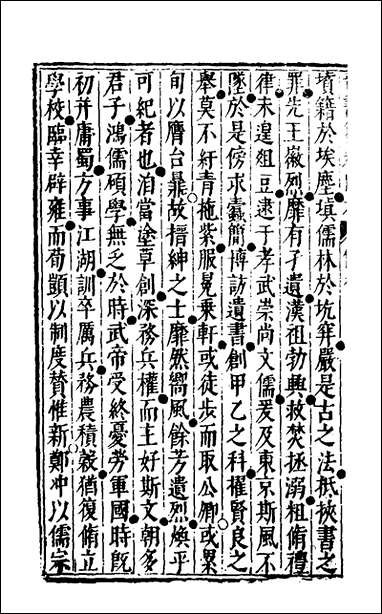 墳籍於埃塵塡儒林於坑穽嚴是古之法抵挾書之
罪先王徽烈靡有孑遺漢祖勃興救焚拯溺粗脩禮
律未遑俎豆逮于孝武崇尚文儒爰及東京斯風不
墜於是傍求蠧簡博訪遺書創甲乙之科擢賢良之
舉莫不紆青拖紫服冕乗軒或徒步而取公卿或累
旬以膺台鼎故搢紳之士靡然嚮風餘芳遺烈煥乎
可紀者也洎當塗草創深務兵權而主好斯文朝多
君子鴻儒碩學無乏於時武帝受終憂勞軍國時旣
初并庸蜀方事江湖訓卒厲兵務農積榖猶復脩立
學校臨幸辟雍而荀顗以制度贊惟新鄭冲以儒宗